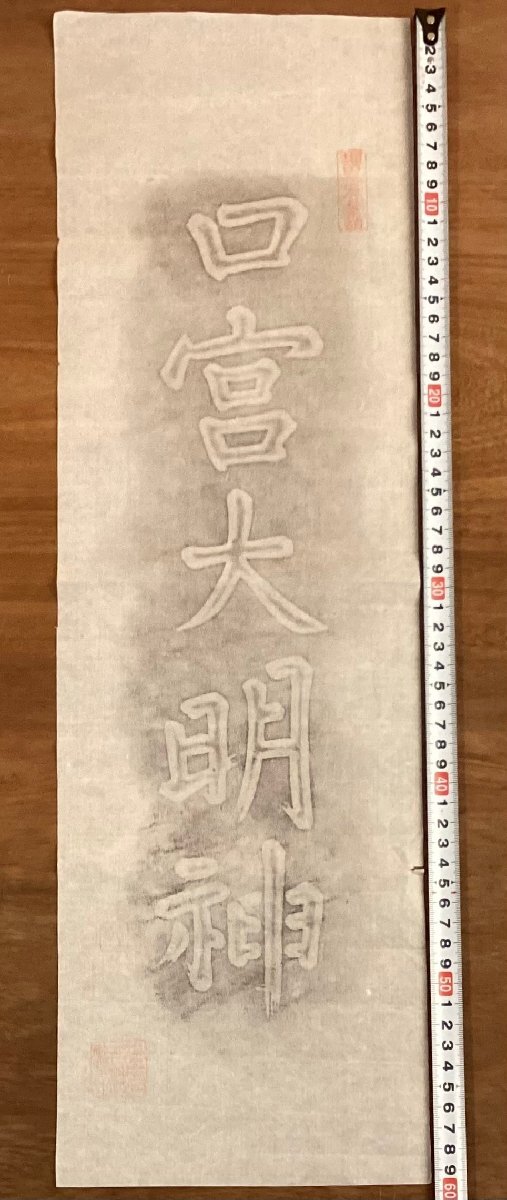 口宮大明神
2 3 4 5 6 7 8 9 10 1 2 3 4 5 6 7 8 9 20 1 2 3 4 5 6 7 8 9 30 1 2 3 4 5 6 7 8 9 40 1 2 3 4 5 6 7 8 9 50 1 2 3 4 5 6 7 8 9 60